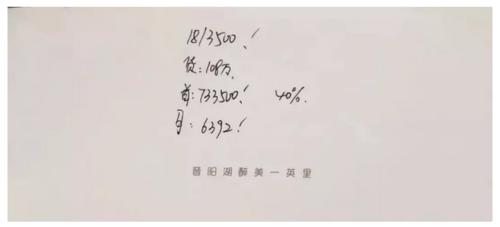 1813500!
贷:108万.
首:733500! 40%.
月:6392!
晋阳湖醉美一英里